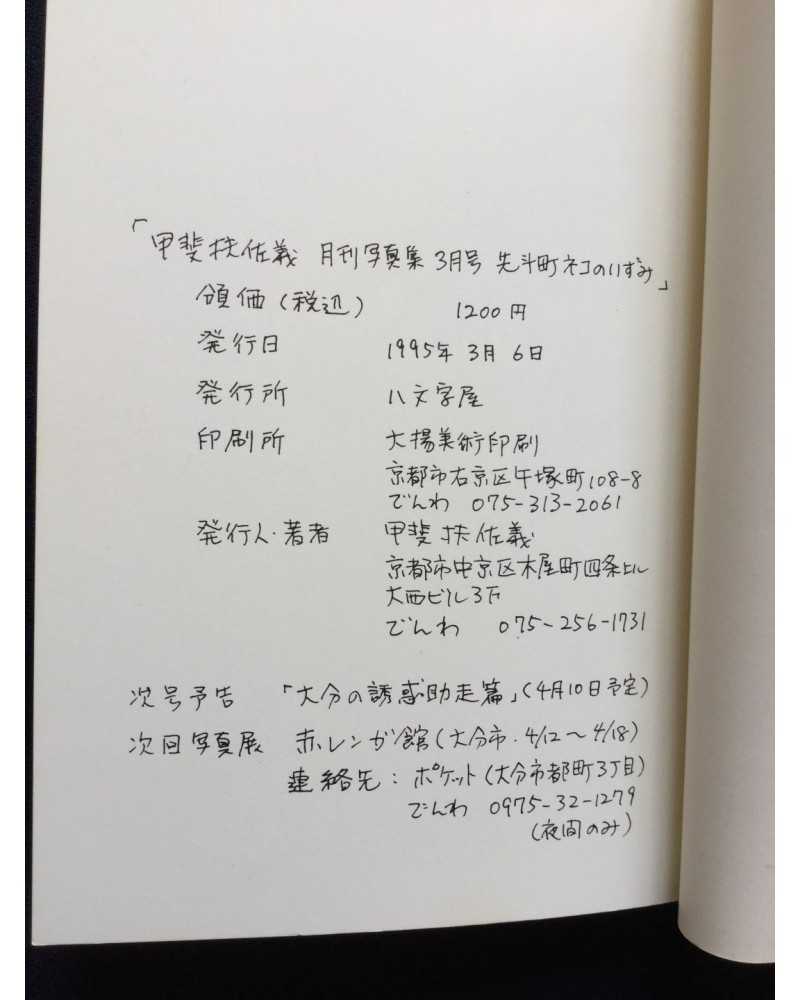 「甲斐扶佐義 月刊写真集 3月号 先斗町ネコのいずみ」
頒価(税込) 1200円
発行日 1995年 3月 6日
発行所 八文字屋
印刷所 大揚美術印刷
京都市右京区午塚町108-8
でんわ 075-313-2061
発行人・著者 甲斐扶佐義
京都市中京区木屋町四条上ル
大西ビル3F
でんわ 075-256-1731
次号予告 「大分の誘惑助走篇」(4月10日予定)
次回写真展 赤レンガ館(大分市・4/12〜4/18)
連絡先:ポケット(大分市都町3丁目)
でんわ 0975-32-1279
(夜間のみ)